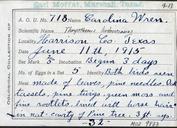 Earl Moffat, Marshall, Texas
A. O. U. No. 718. Carolina Wren.
Scientific Name Thryothorus ludovicianus
Locality Harrison Co. Texas
Date June 11th, 1915
Set Mark Incubation Begun 3 days
No. of Eggs in a Set 5 Identity Both birds seen
made of leaves, pine needles,
tassels, pine twigs, green moss and
fine rootlets, lined with horse hair
in nat. cavity of Pine Tree. 3 ft up.